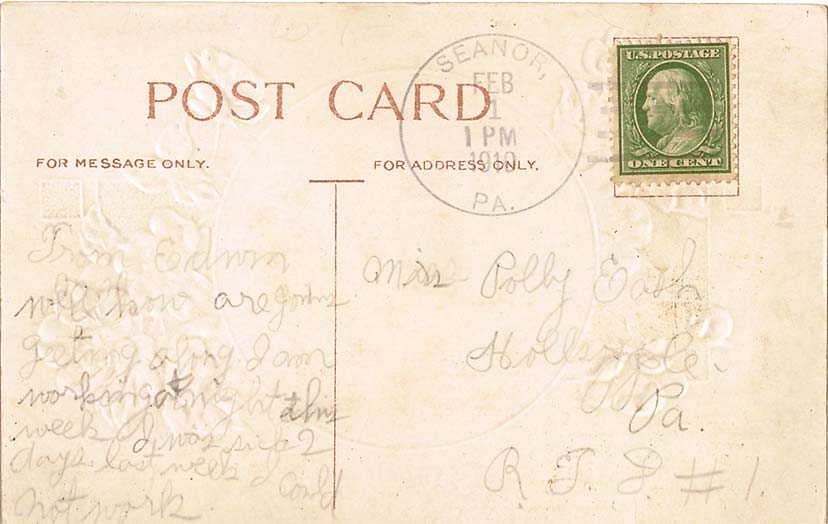 POST CARD
FOR MESSAGE ONLY.
FOR ADDRESS ONLY.
SEANOR,
FEB
1
1 PM
1910
PA.
U.S. POSTAGE
ONE CENT
From Edwin
well how are
geting along I am
working at night this
week I was sick 2
days last week I
could
not work.
Miss Polly Eash
Hollsopple.
Pa.
R F D #1